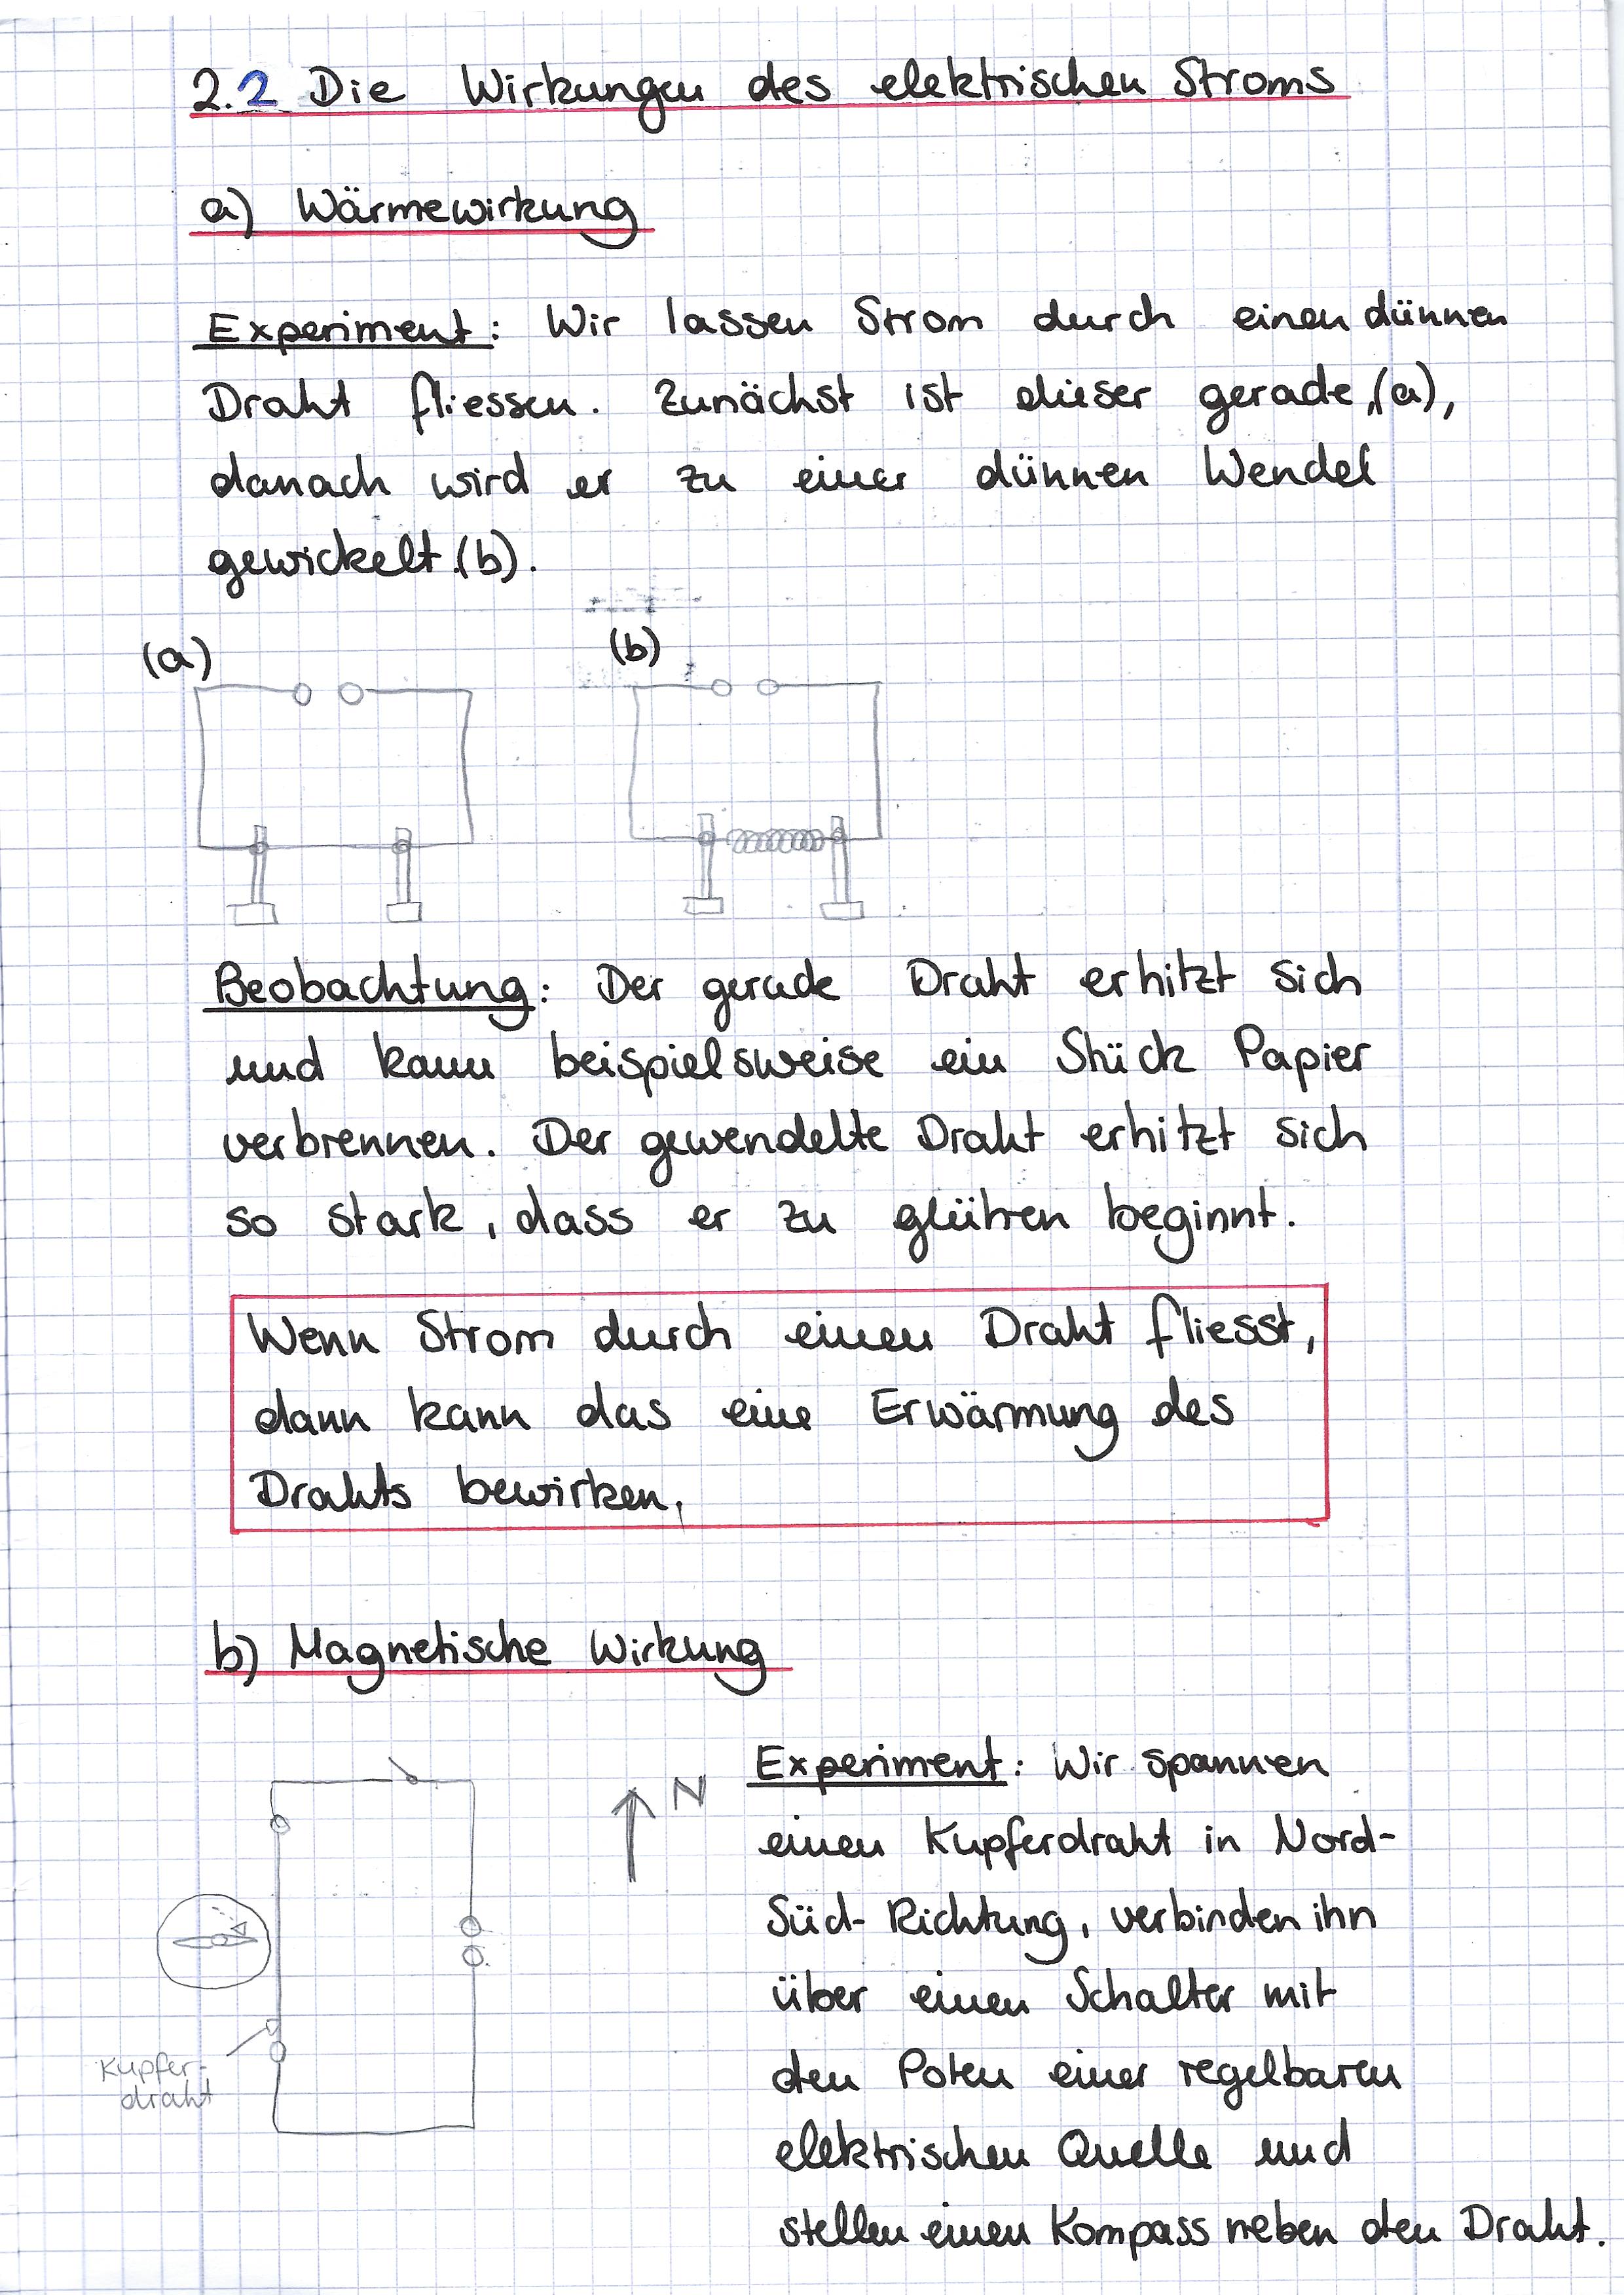 2.2 Die Wirkungen des elektrischen Stroms
a) Wärmewirkung
Experiment: Wir lassen Strom durch einen dünnen
Draht fliessen. Zunächst ist dieser gerade (a),
danach wird er zu einer dünnen Wendel
gewickelt (b).
(a)
(b)
Beobachtung: Der gerade Draht erhitzt sich
und kann beispielsweise ein Stück Papier
verbrennen. Der gewendelte Draht erhitzt sich
so stark, dass er zu glühen beginnt.
Wenn Strom durch einen Draht fliesst,
dann kann das eine Erwärmung des
Drahts bewirken.
b) Magnetische Wirkung
N
Kupfer-
draht
Experiment: Wir spannen
einen Kupferdraht in Nord-
Süd-Richtung, verbinden ihn
über einen Schalter mit
den Polen einer regelbaren
elektrischen Quelle und
stellen einen Kompass neben den Draht.